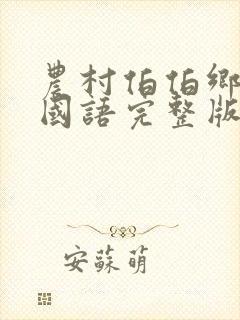 農村伯伯鄉
國語完整版
安蘇萌